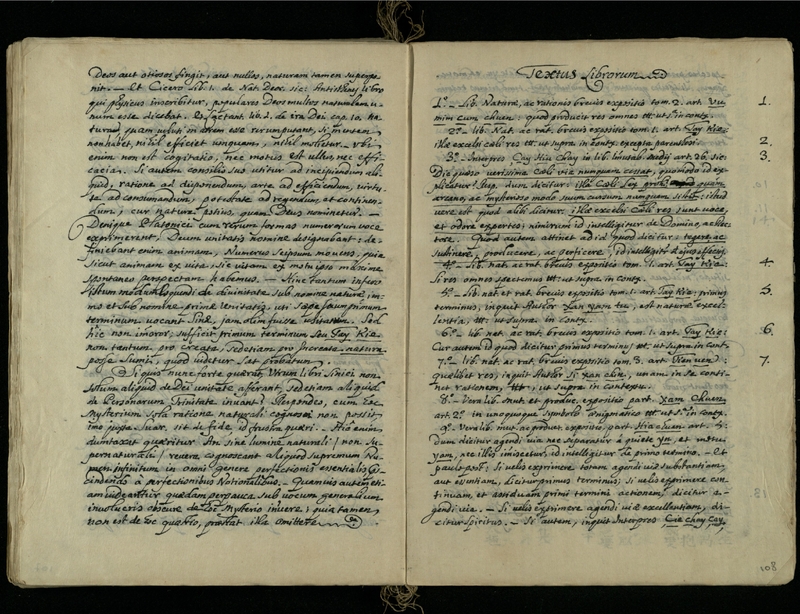 Deos aut otiosos fingit, aut nullos, naturam tamen superpo
nit. — Et Cicero Lib. 1. de Nat. Deor. sic: Antisthenes libro
qui physicus inscribitur, populares Deos multos naturalem u-
num esse dicebat. Lactant. lib. 2. de ira Dei cap. 10. Na
turam, quam veluti matrem esse rerum putant, si mentem
non habet, nihil efficiet unquam, nihil molietur. — Vbi
enim non est cogitatio, nec motus est ullus, nec effi-
cacia. Si autem consilio suo utitur ad incipiendum ali-
quid, ratione ad disponendum, arte ad efficiendum, virtu-
te ad consummandum, potestate ad regendum et continen-
dum; cur natura potius, quam Deus nominetur. —
Denique Platonici cum rerum formas numerorum voce
exprimerent, Deum unitatis nomine designabant: de-
finiebant enim animam, Numerus seipsum movens, quia
sicut animam ex vita sic vitam ex motu ipso maxime
spontaneo perspectam habemus. — Hinc tantum infero
istum modum loquendi de divinitate sub nomine naturæ im-
mo et sub nomine primæ unitatis, uti sæpe primum
terminum vocant Sinæ, jam olim fuisse usitatum. Sed
hic non imoror; sufficit primum terminum seu Tay Kie
non tantum pro creata, sed etiam pro Increata natura
posse sumi, quod videtur sat probatum.
Si quis nunc forte quærat, Utrum libri Sinici non
istum aliquid de Dei unitate asserant, sed etiam aliquid
de Personarum Trinitate innuant? Respondeo, cum hoc
Mysterium sola ratione naturali cognosci non possit
imo juxta Suar. sit de fide, id frustra quæri. Hic enim
dumtaxat quæritur An sine lumine naturali / non Su-
pernaturali / revera cognoscant aliquod supremum Nu-
men infinitum in omni genere perfectionis essentialis
cindendo a perfectionibus Notionalibus. — Quamvis autem eti-
am videantur quædam perpauca sub vocum generalium
involucris obscure de hoc Mysterio innuere; quia tamen
non est de hoc quæstio, præstat illa omittere.
Textus Librorum
1.º — Lib. Naturæ, ac rationis brevis expositio tom. 2. art. Vu
mim cum chuen: quod producit res omnes ut supra in contx. 1.
2.º — lib. Nat. ac rat. brevis expositio tom. 1. art. Tay Kie:
illæ excelsi cæli res ut supra in contx. excepta parenthesi. 2.
3.º — Interpres Cay Hiu Chay in lib. Imutab. medij art. 26. sic: 3.
Dic quæso verissima Cæli via nunquam cessat, quomodo id ex-
plicatur? Resp. dum dicitur: illa Cæli Lex proh! quam
arcano, ac mysterioso modo suum cursum nunquam sistit: illud
vere est quod alibi dicitur: illæ excelsi Cæli res sunt voce,
et odore expertes; nimirum id intelligitur de Domino, ac Rec-
tore. Quod autem attinet ad id quod dicitur: tegere ac
sustinere, producere, ac perficere; id intelligitur
4.º — Lib. Nat. ac rat. brevis expositio tom. 1. art. Tay Kie: 4.
Si res omnes spectemus ut supra in contx.
5.º — lib. nat. et rat. brevis expositio tom. 1. art. Tay Kie: primus 5.
terminus, inquit Author Xan xam tu, est naturæ excel-
lentia, ut supra in contx.
6.º — lib. nat. ac rat. brevis expositio tom. 1. art. Tay Kie: 6.
Cur autem id quod dicitur primus terminus ut supra in contx.
7.º — lib. nat. ac rat. brevis expositio tom. 3. art. Uen uen: 7.
quælibet res, inquit Author Si xan chin, unam in se conti-
net rationem, ut supra in contextu.
8.º — Vera lib. Mut. et produc. expositio part. xam Chuen
art. 2.º in unoquoque symbolo ænigmatico ut supra in contx.
9.º Vera lib. mut. ac produc. expositio, part. Hia chuen art. 5:
dum dicitur agendi via nec separatur a quiete yn, et motu
yam, nec illis imiscetur, id intelligitur de primo termino. — Et
paulo post: Si velis exprimere totam agendi viæ substantiam,
aut essentiam, dicitur primus terminus; si velis exprimere con
tinuam, et assiduam primi termini actionem, dicitur a-
gendi via. — Si velis exprimere agendi viæ excellentiam, di-
citur spiritus. — Si autem, inquit Interpres, Cae Chay Cay,
108